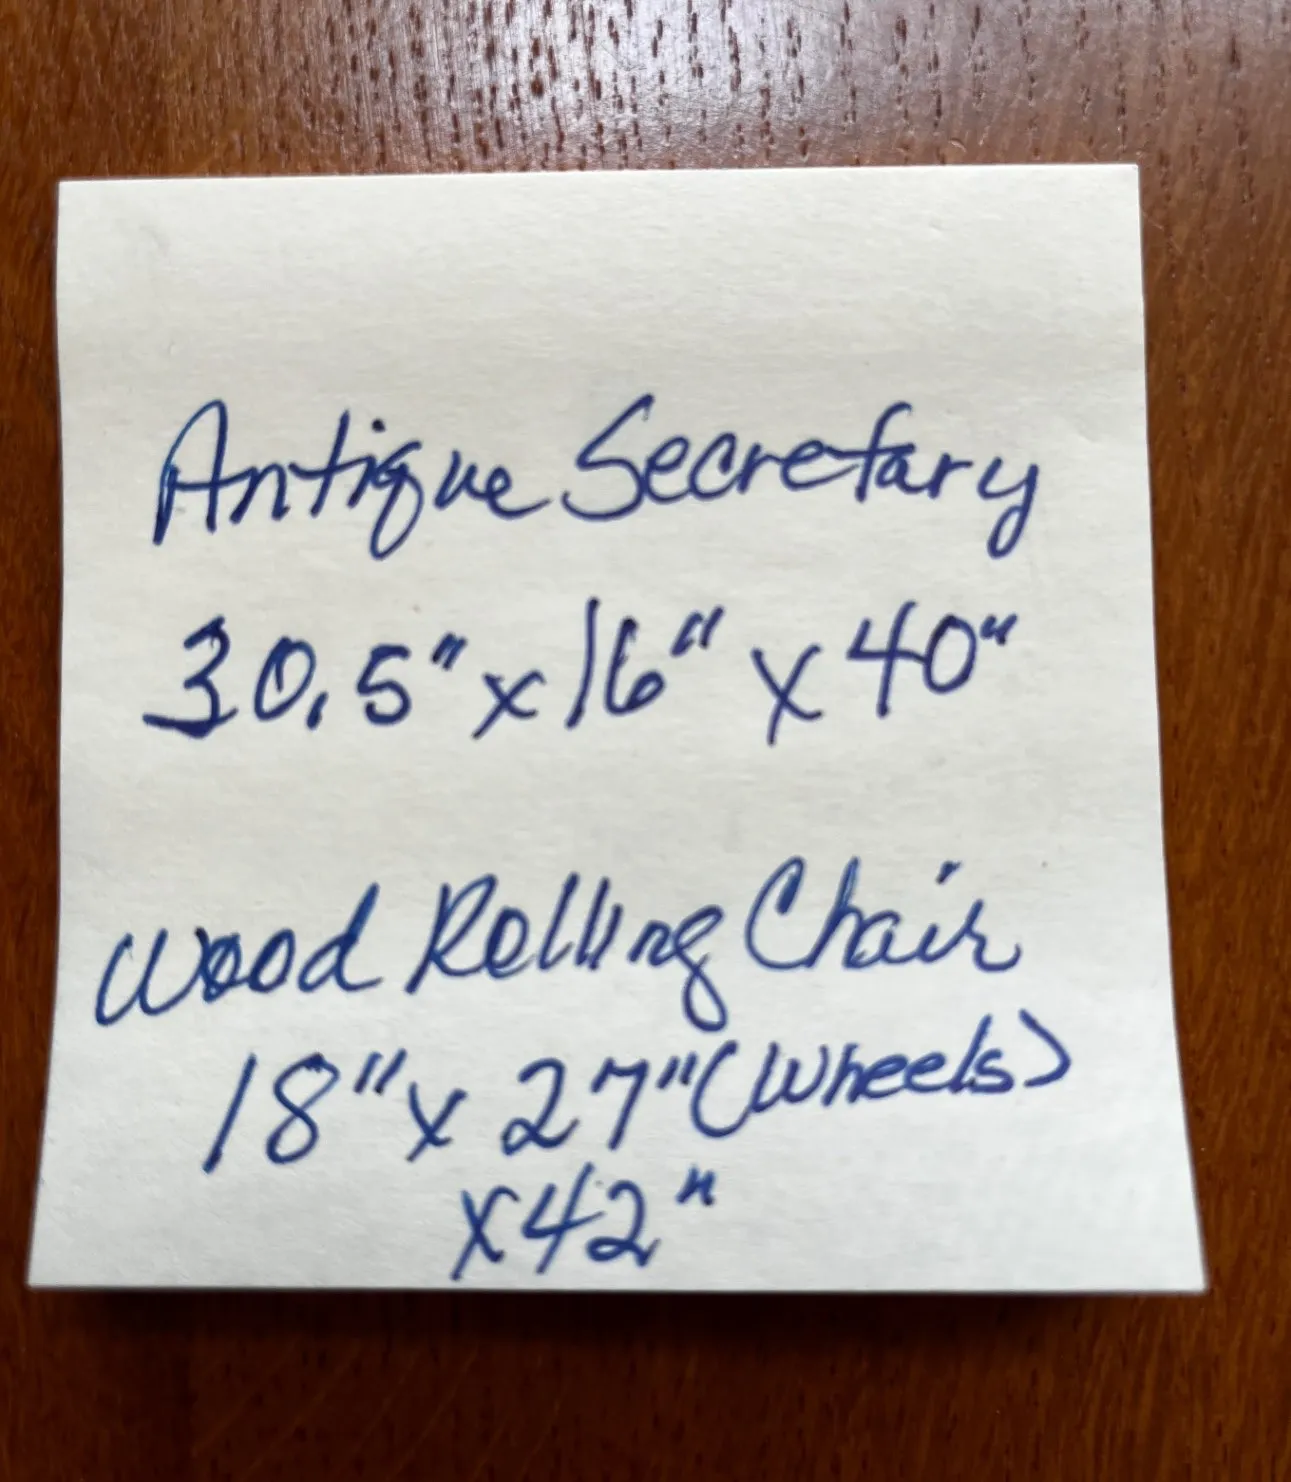 Antique Secretary
30.5" x 16" x 40"
Wood Rolling Chair
18" x 27" (Wheels)
x 42"